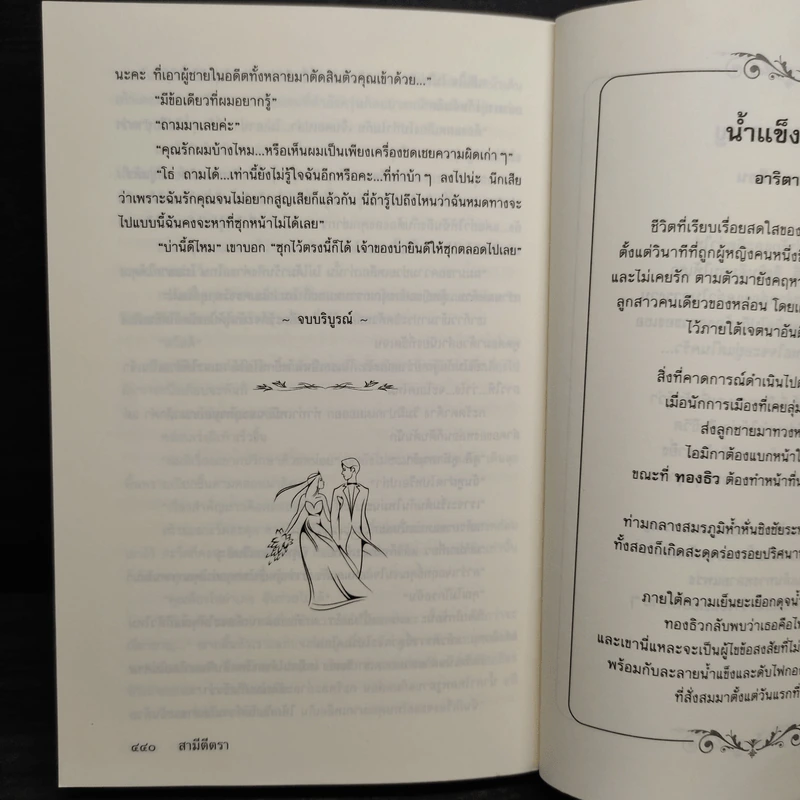 นะคะ ที่เอาผู้ชายในอดีตทั้งหลายมาตัดสินตัวคุณเข้าด้วย..."
"มีข้อเดียวที่ผมอยากรู้"
"ถามมาเลยค่ะ"
"คุณรักผมบ้างไหม...หรือเห็นผมเป็นเพียงเครื่องชดเชยความผิดเก่าๆ"
"โธ่ ถามได้...เท่านี้ยังไม่รู้ใจฉันอีกหรือคะ...ที่ทำบ้าๆ ลงไปน่ะ นึกเสีย
ว่าเพราะฉันรักคุณจนไม่อยากสูญเสียก็แล้วกัน นี่ถ้ารู้ไปถึงไหนว่าฉันหมดทางจะ
ไปแบบนี้ฉันคงจะหาที่ซุกหน้าไม่ได้เลย"
"บ่านี้ดีไหม" เขาบอก "ซุกไว้ตรงนี้ก็ได้ เจ้าของบ่ายินดีให้ซุกตลอดไปเลย"
~ จบบริบูรณ์ ~
๔๔๐ สามีตีตรา
น้ำแข็ง
อาริตา
ชีวิตที่เรียบเรื่อยสดใสของ
ตั้งแต่วินาทีที่ถูกผู้หญิงคนหนึ่ง
และไม่เคยรัก ตามตัวมายังคฤห
ลูกสาวคนเดียวของหล่อน โดย
ไว้ภายใต้เจตนาอัน
สิ่งที่คาดการณ์ดำเนินไป
เมื่อนักการเมืองที่เคยลุ่ม
ส่งลูกชายมาทวง
ไอมิกาต้องแบกหน้า
ขณะที่ ทองธิว ต้องทำหน้าที่
ท่ามกลางสมรภูมิห้ำหั่นชิงชัยระห
ทั้งสองก็เกิดสะดุดร่องรอยปริศนา
ภายใต้ความเย็นยะเยือกดุจน้ำ
ทองธิวกลับพบว่าเธอคือ
และเขานี่แหละจะเป็นผู้ไขข้อสงสัยที่ไม่
พร้อมกับละลายน้ำแข็งและดับไฟกอง
ที่สั่งสมมาตั้งแต่วันแรกที่